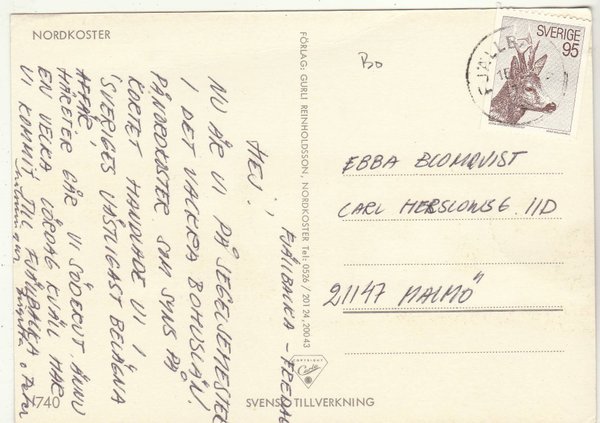 NORDKOSTER
FJÄLLBACKA – FREDAG
HEJ!
NU ÄR VI PÅ SEGELSEMESTER
I DET VACKRA BOHUSLÄN!
PÅ NORDKOSTER SOM SYNS PÅ
KORTET HANDLADE VI I
"SVERIGES VÄSTLIGAST BELÄGNA
AFFÄR"
HÄREFTER GÅR VI SÖDERUT. ÄNNU
EN VECKA. LÖRDAG KVÄLL HAR
VI KOMMIT TILL FJÄLLBACKA.
Birgitta o Peter
1740
FÖRLAG: GURLI REINHOLDSSON, NORDKOSTER Tel: 0526 / 201 24, 200 43
COPYRIGHT
SVENSK TILLVERKNING
Bo
SVERIGE
95
FJÄLLB
EBBA BLOMQVIST
CARL HERSLOWSG. 11D
21147 MALMÖ